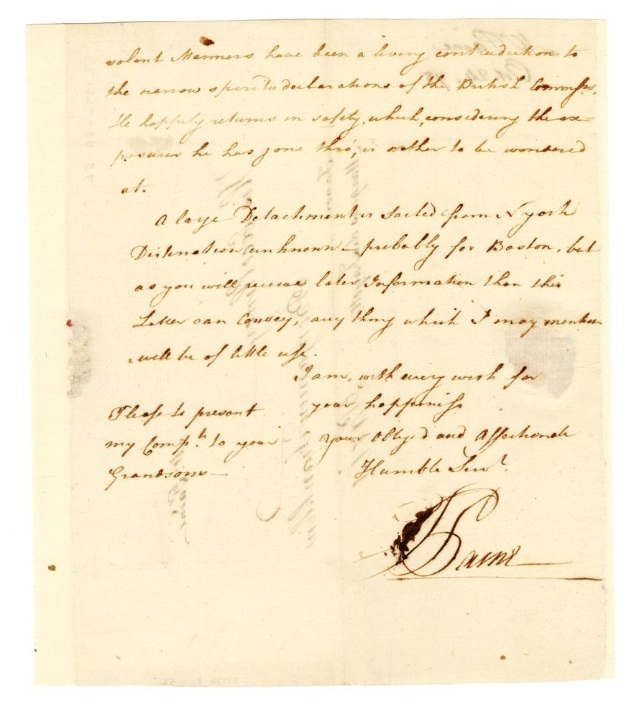 volent Manners have been a living contradiction to
the narrow spirited declarations of the British Commsrs.
He happily returns in safety, which, considering the ex-
posures he has gone thro', is rather to be wondered
at.
A large Detachment is sailed from N york
Distination unknown — probably for Boston, but
as you will receive later Information than this
Letter can Convey, any thing which I may mention
will be of little use.
I am, with every wish for
your happiness
Your Obliged and Affectionate
Humble Servt.
T Paine
Please to present
my Compts. to your
Grandsons —